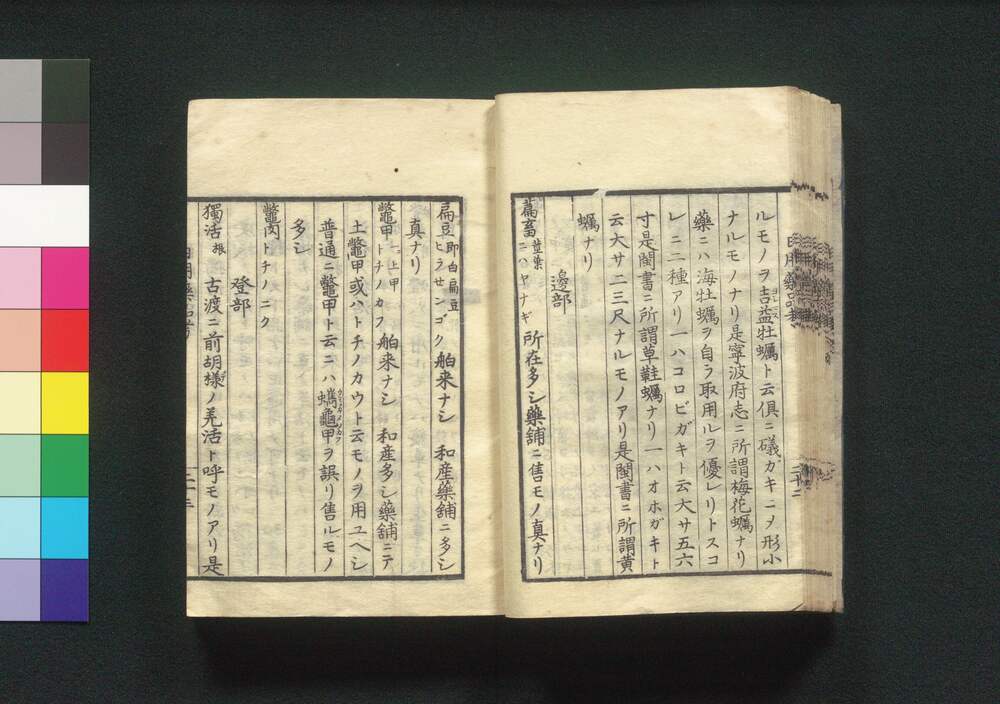 ルモノヲ吉益牡蠣ト云俱ニ礒ガキニメ形小
ナルモノナリ是寧波府志ニ所謂梅花蠣ナリ
藥ニハ海牡蠣ヲ自ラ取用ルヲ優レリトスコ
レニ二種アリ一ハコロビガキト云大サ五六
寸是閩書ニ所謂草鞋蠣ナリ一ハオホガキト
云大サ二三尺ナルモノアリ是閩書ニ所謂黄
蠣ナリ
邉部
萹畜 並葉 ニハヤナギ 所在多シ藥舗ニ售モノ真ナリ
扁豆 即白扁豆 ヒラセンゴク 舶来ナシ 和産藥舗ニ多シ
真ナリ
鼈甲 一上甲 トチノカフ 舶来ナシ 和産多シ藥舗ニテ
土鼈甲或ハトチノカウト云モノヲ用ユヘシ
普通ニ鼈甲ト云ニハ蠵龜甲ヲ誤リ售ルモノ
多シ
鼈肉 トチノニク
登部
獨活 根 古渡ニ前胡樣ノ羌活ト呼モノアリ是